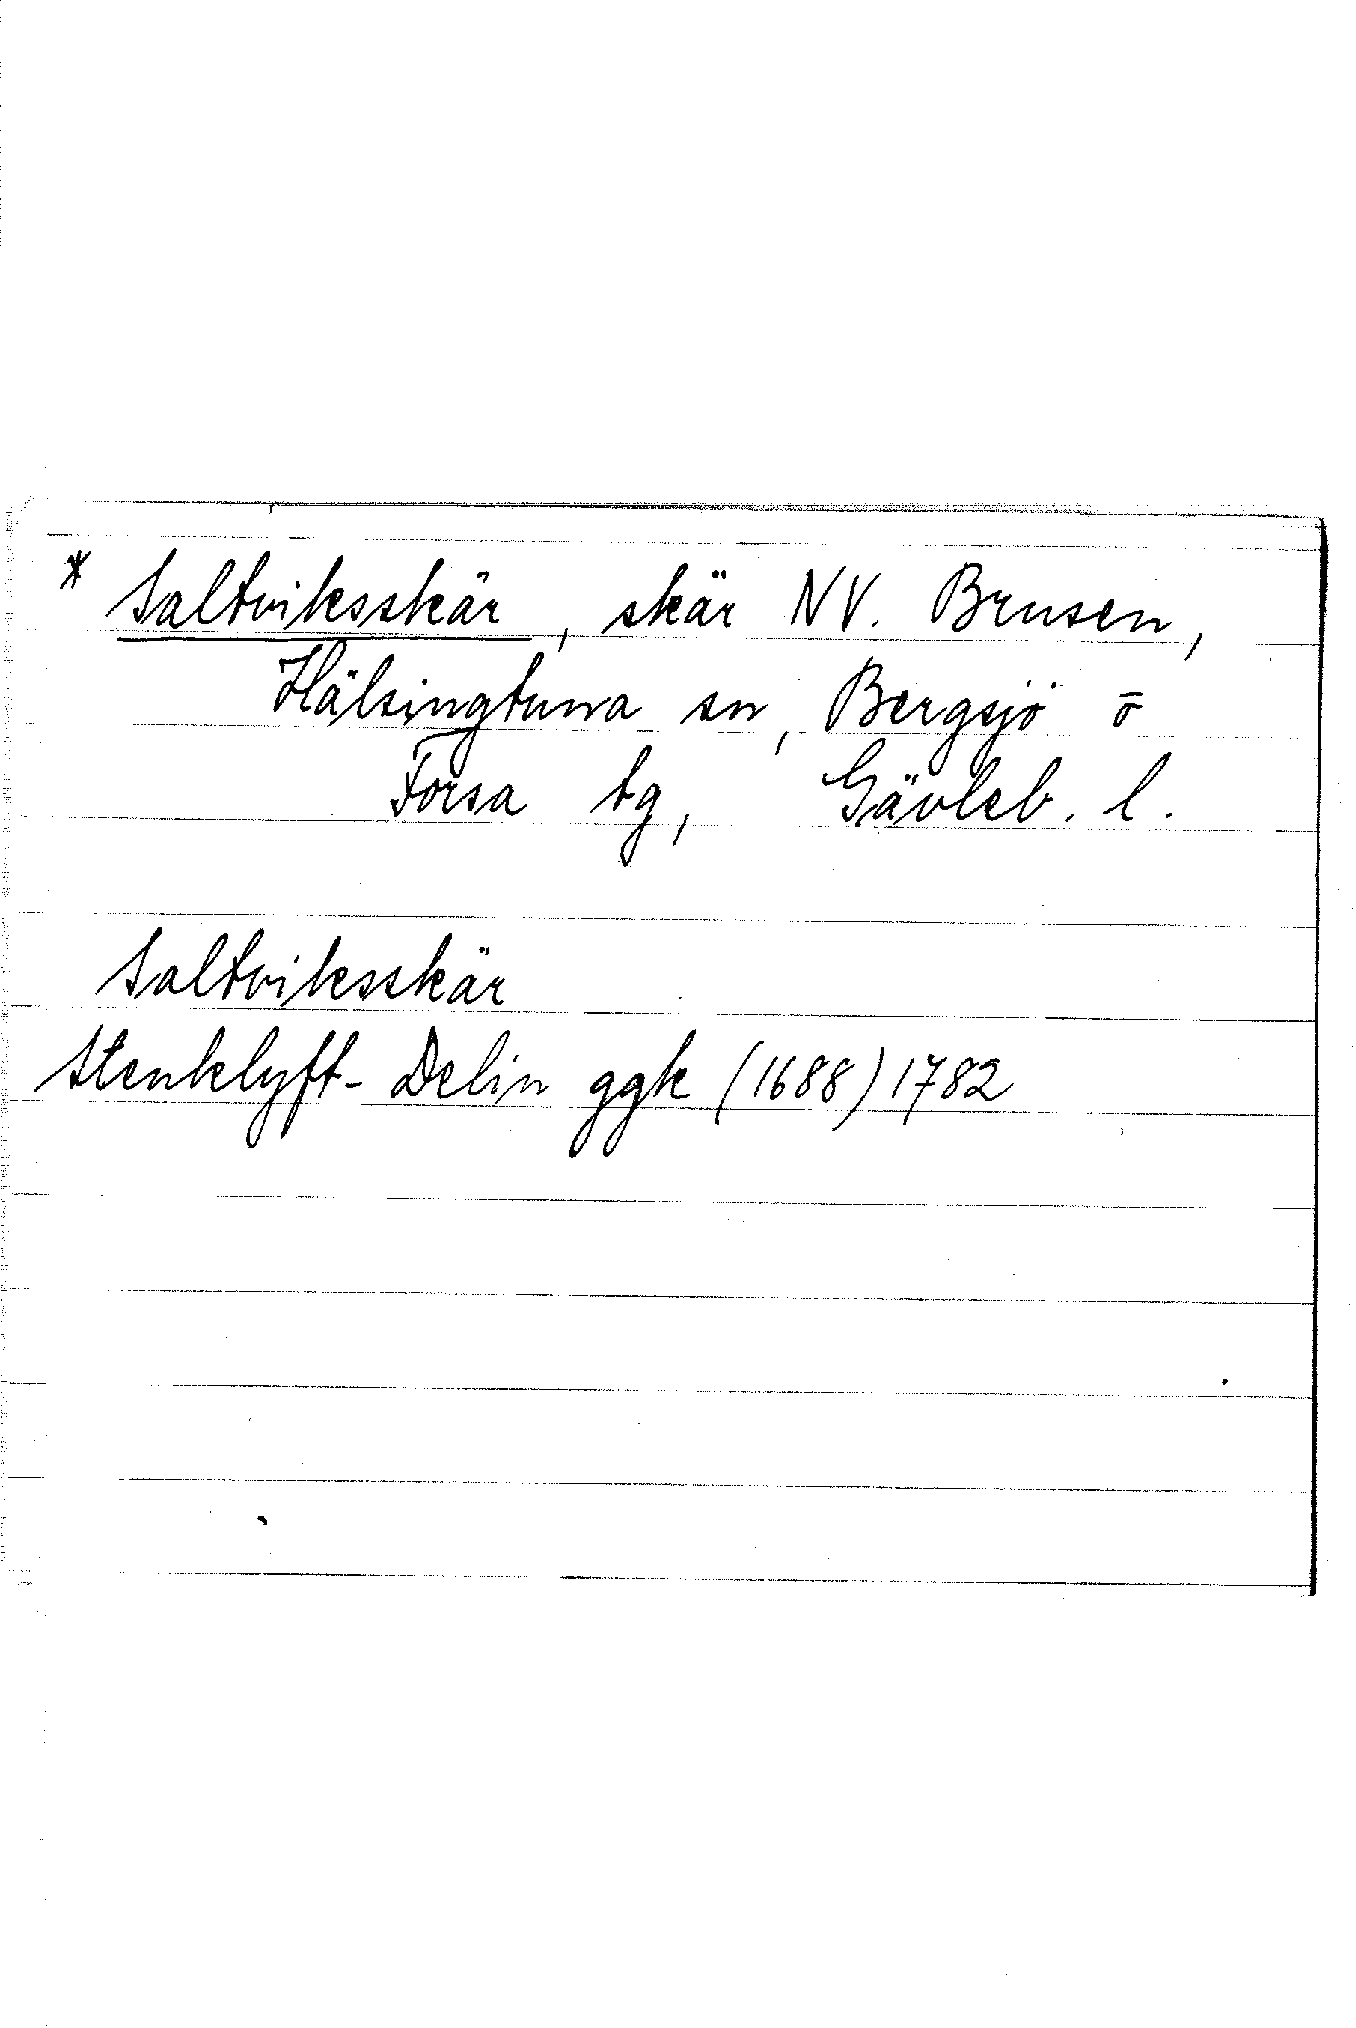 * Saltviksskär, skär NV. Brusen,
Hälsingtuna sn, Bergsjö o
Forsa tg, Gävleb. l.
Saltviksskär
Stenklyft- Delin ggk (1688) 1782